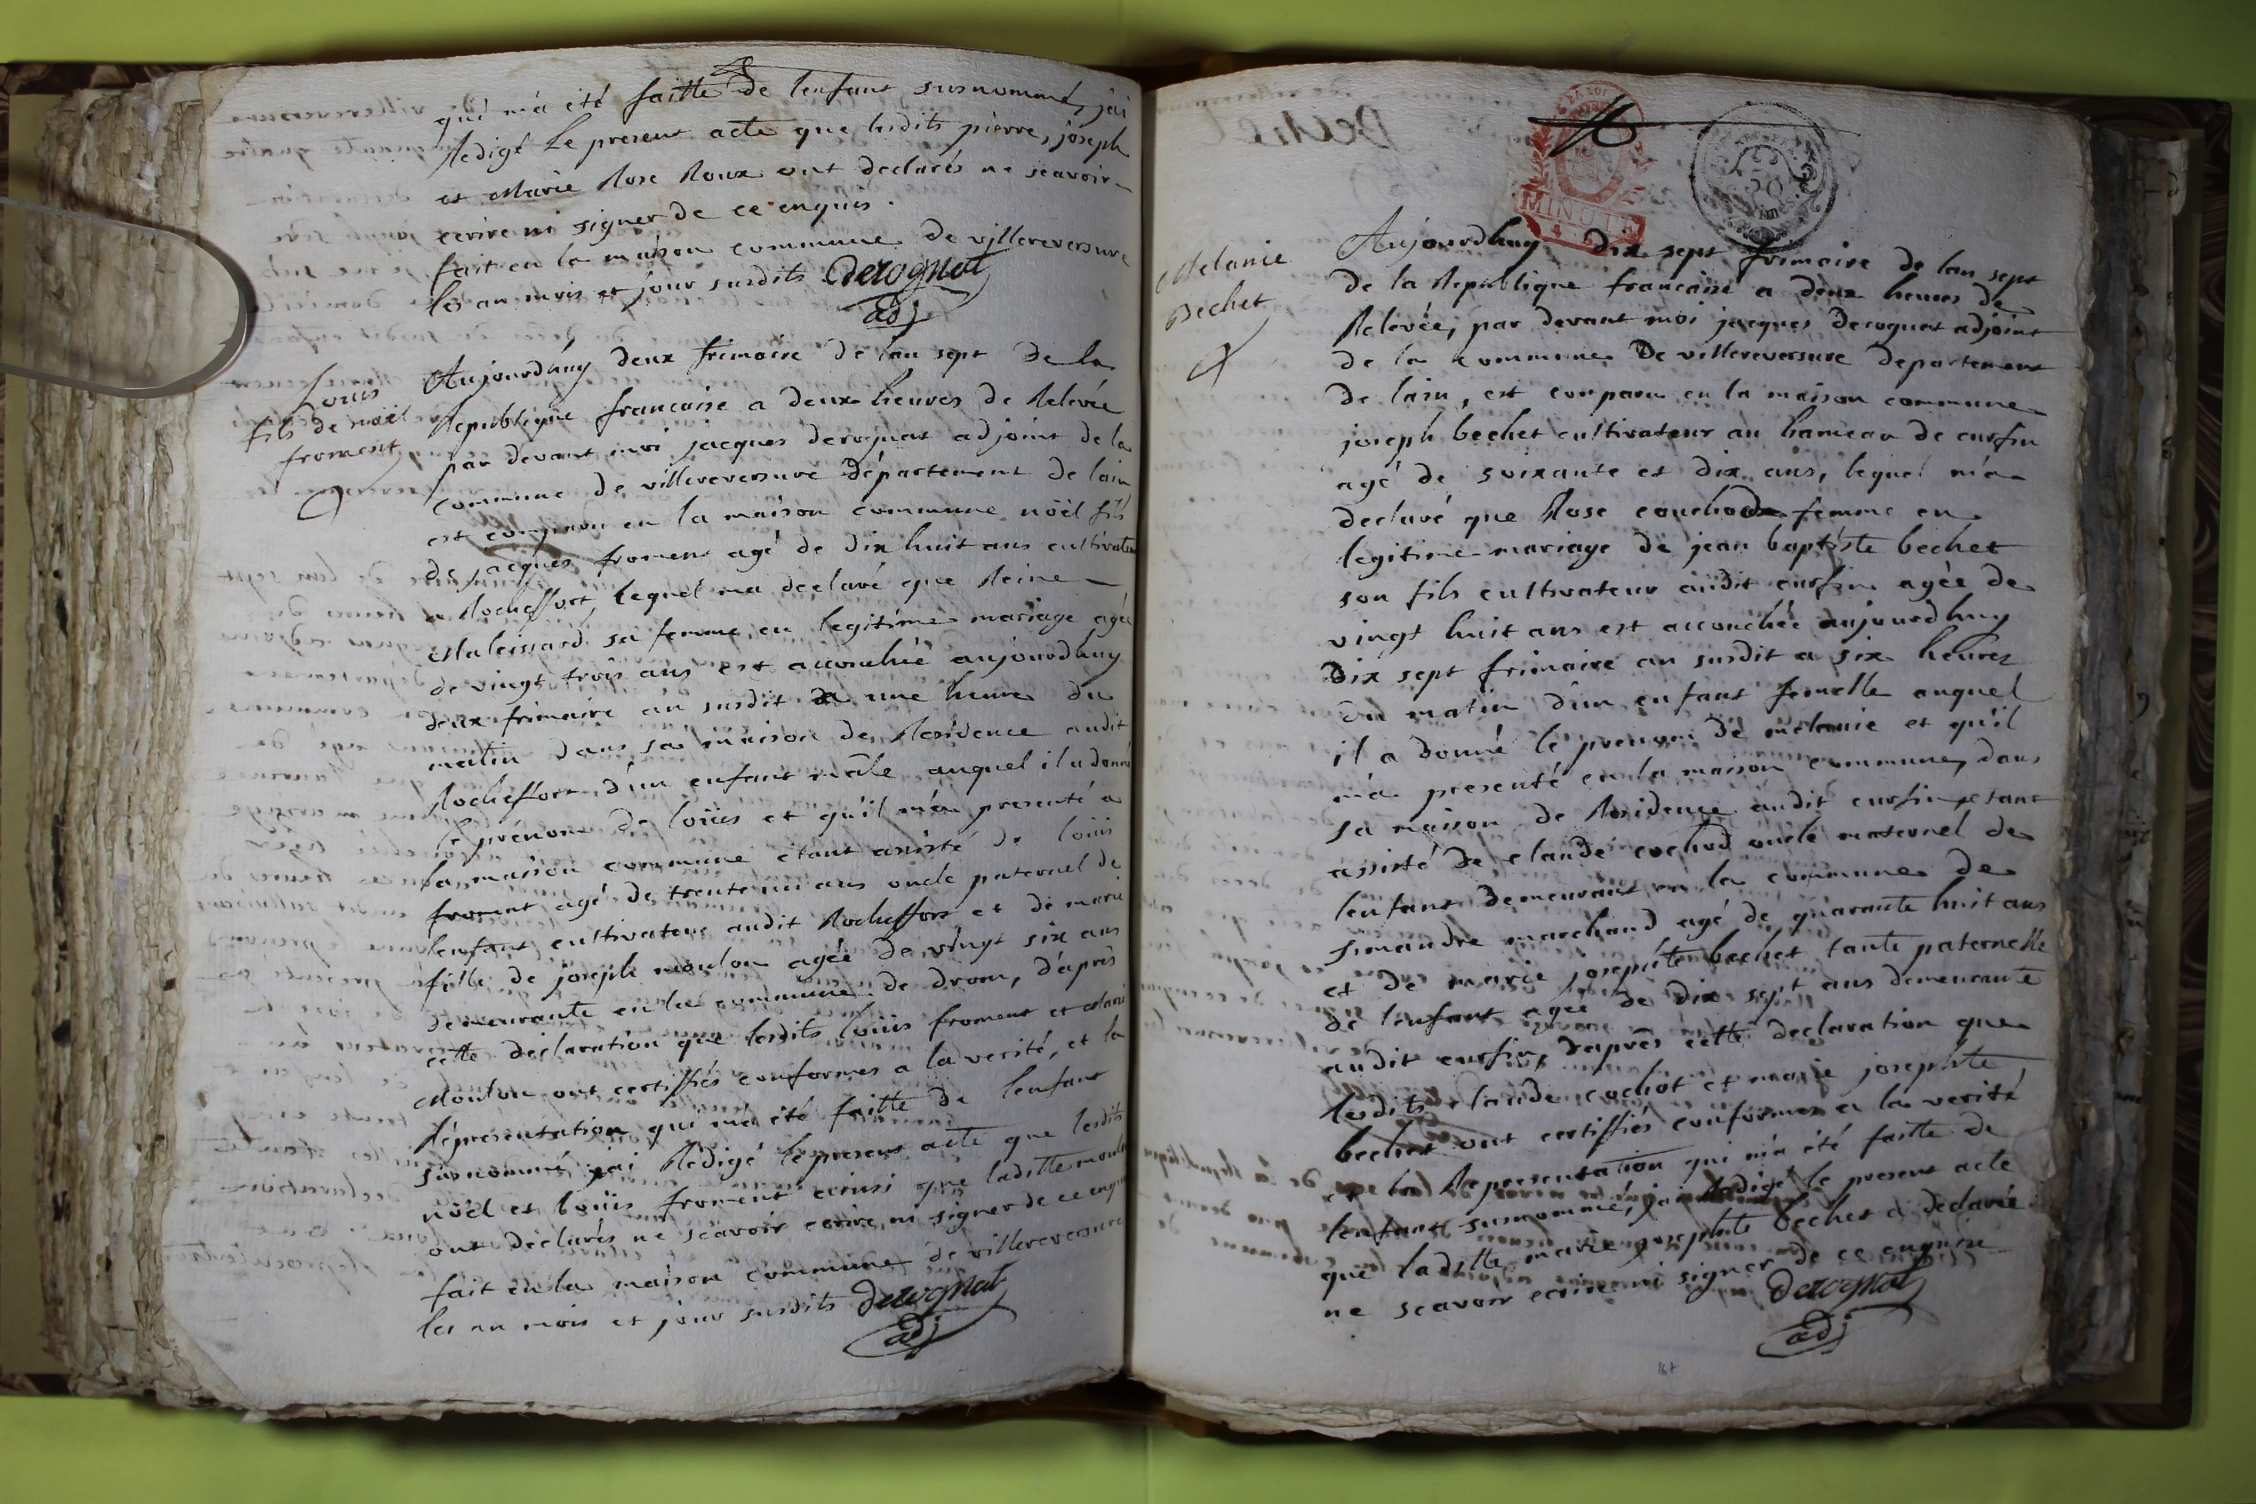 qui m'a été faitte de l'enfant susnommé, j'ai
Redigé Le present acte que lesdits pierre, joseph
et Marie Rose Roux ont declarés ne scavoir
ecrire ni signer de ce enquis.
fait en la maison commune de villereversure
les an mois et jour susdits Derognat
adj
Louis
fils de noël
froment
Aujourdhuy deux frimaire de l'an sept de la
Republique francaise a deux heures de Relevée
par devant moi jacques derognat adjoint de la
commune de villereversure Département de lain
est comparu en la maison commune noël fils
de jacques froment agé de dix huit ans cultivateur
a Rocheffort, lequel m'a declaré que Reine
Maleissard sa femme en legitime mariage agée
de vingt trois ans est accouchée aujourdhuy
deux frimaire an susdit a une heure du
matin dans sa maison de Residence audit
Rocheffort d'un enfant mâle auquel il a donné
le prénom de loüis et qu'il m'a presenté a
la maison commune étant assisté de loüis
froment agé de trente un ans oncle paternel de
l'enfant, cultivateur audit Rocheffort et de marie
fille de joseph moulon agée de vingt six ans
demeurante en la commune de drom, d'après
cette déclaration que lesdits loüis froment et Marie
Moulon ont certiffiés conformes a la verité, et la
Représentation qui m'a été faitte de l'enfant
susnommé j'ai Rédigé le present acte que lesdits
noël et loüis froment ainsi que laditte moulon
ont declarés ne scavoir ecrire ni signer de ce enquis
fait en la maison commune de villereversure
les an mois et jour susdits Derognat
adj
MINUTE
50
Melanie
Bechet
Aujourdhuy dix sept frimaire de lan sept
de la Republique francaise a deux heures de
Relevée, par devant moi jacques Derognat adjoint
de la commune De villereversure departement
De lain, est comparu en la maison commune
joseph bechet cultivateur au hameau de curfin
agé de soixante et dix ans, lequel m'a
declaré que Rose couchod femme en
legitime mariage de jean baptiste bechet
son fils cultivateur audit curfin agée de
vingt huit ans est accouchée aujourdhuy
Dix sept frimaire an susdit a six heures
du matin d'un enfant femelle auquel
il a donné le prenom de mélanie et qu'il
m'a presenté en la maison commune, dans
sa maison de Residence audit curfin, etant
assisté de claude cochod oncle maternel de
l'enfant demeurant en la commune de
simandre marchand agé de quarante huit ans
et de marie josephte bechet tante paternelle
de l'enfant agée de dix sept ans demeurante
audit curfin, d'après cette declaration que
lesdits claude cochot et marie josephte
bechet ont certiffiés conformes a la verité
et la Representation qui m'a été faitte de
l'enfant susnommé, j'ai Redigé le present acte
que laditte marie josephte bechet a declarée
ne scavoir ecrire ni signer de ce enquise
Derognat
adj